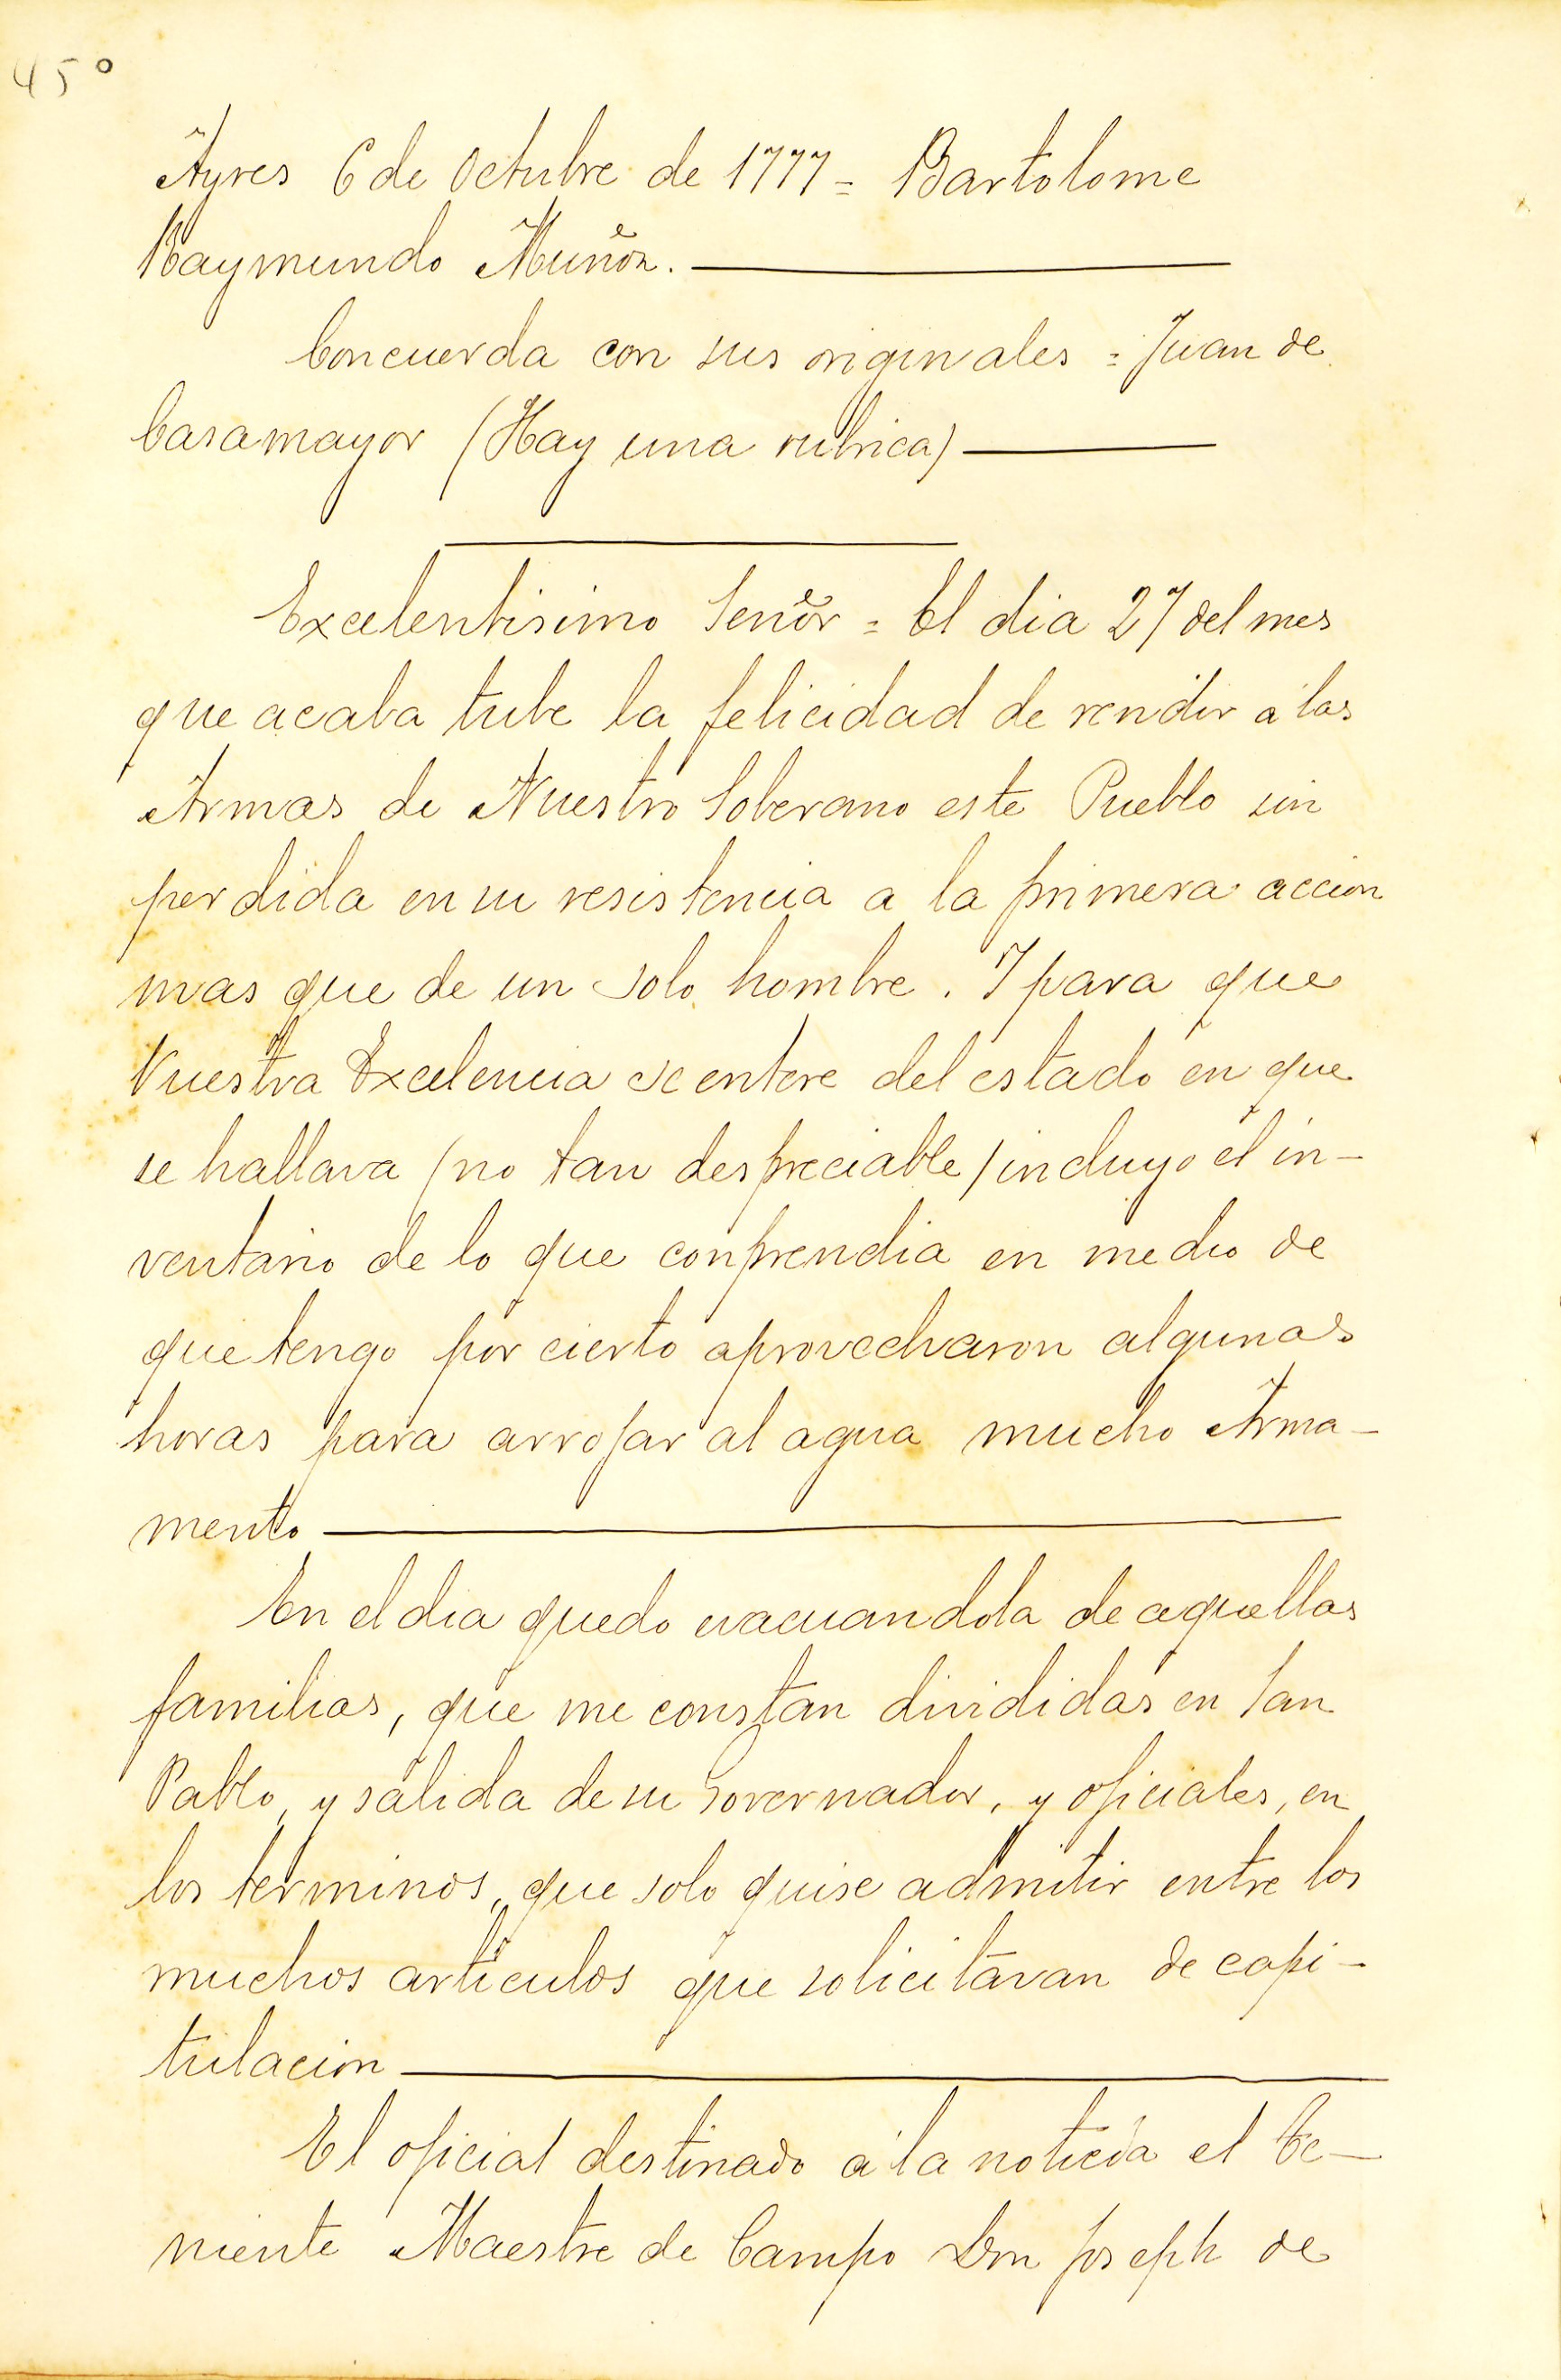 45º
Ayres 6 de Octubre de 1777 = Bartolome
Raymundo Muñoz.
Concuerda con sus originales = Juan de
Casamayor (Hay una rubrica)
Excelentisimo Señor = El dia 27 del mes
que acaba tube la felicidad de rendir á las
Armas de Nuestro Soberano este Pueblo sin
perdida en su resistencia a la primera accion
mas que de un solo hombre. Y para que
Vuestra Excelencia se entere del estado en que
se hallava (no tan despreciable) incluyo el in-
ventario de lo que conprendia en medio de
que tengo por cierto aprovecharon algunas
horas para arrojar al agua mucho Arma-
mento
En el dia quedo evacuandola de aquellas
familias, que me constan divididas en San
Pablo, y salida de su Governador, y oficiales, en
los terminos, que solo quise admitir entre los
muchos articulos que solicitavan de capi-
tulacion
El oficial destinado á la noticia el Te-
niente Maestre de Campo Don Joseph de